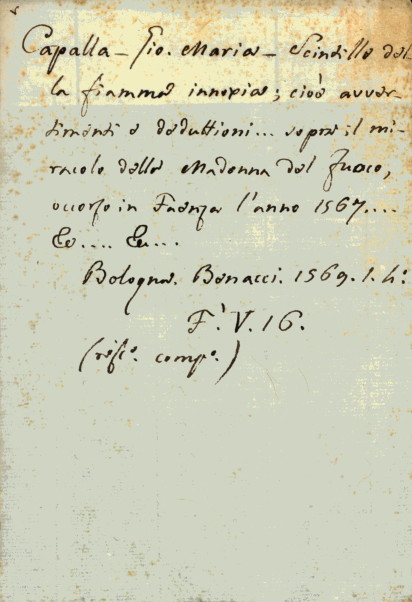 Capalla - Gio. Maria - Scintille del
la fiamma innoxia; cioè avver
timenti e deduttioni... sopra il mi-
racolo della Madonna del fuoco,
occorso in Faenza l'anno 1567....
Ec.... Ec...
Bologna. Benacci. 1569. 1. 4:
F. V. 16.